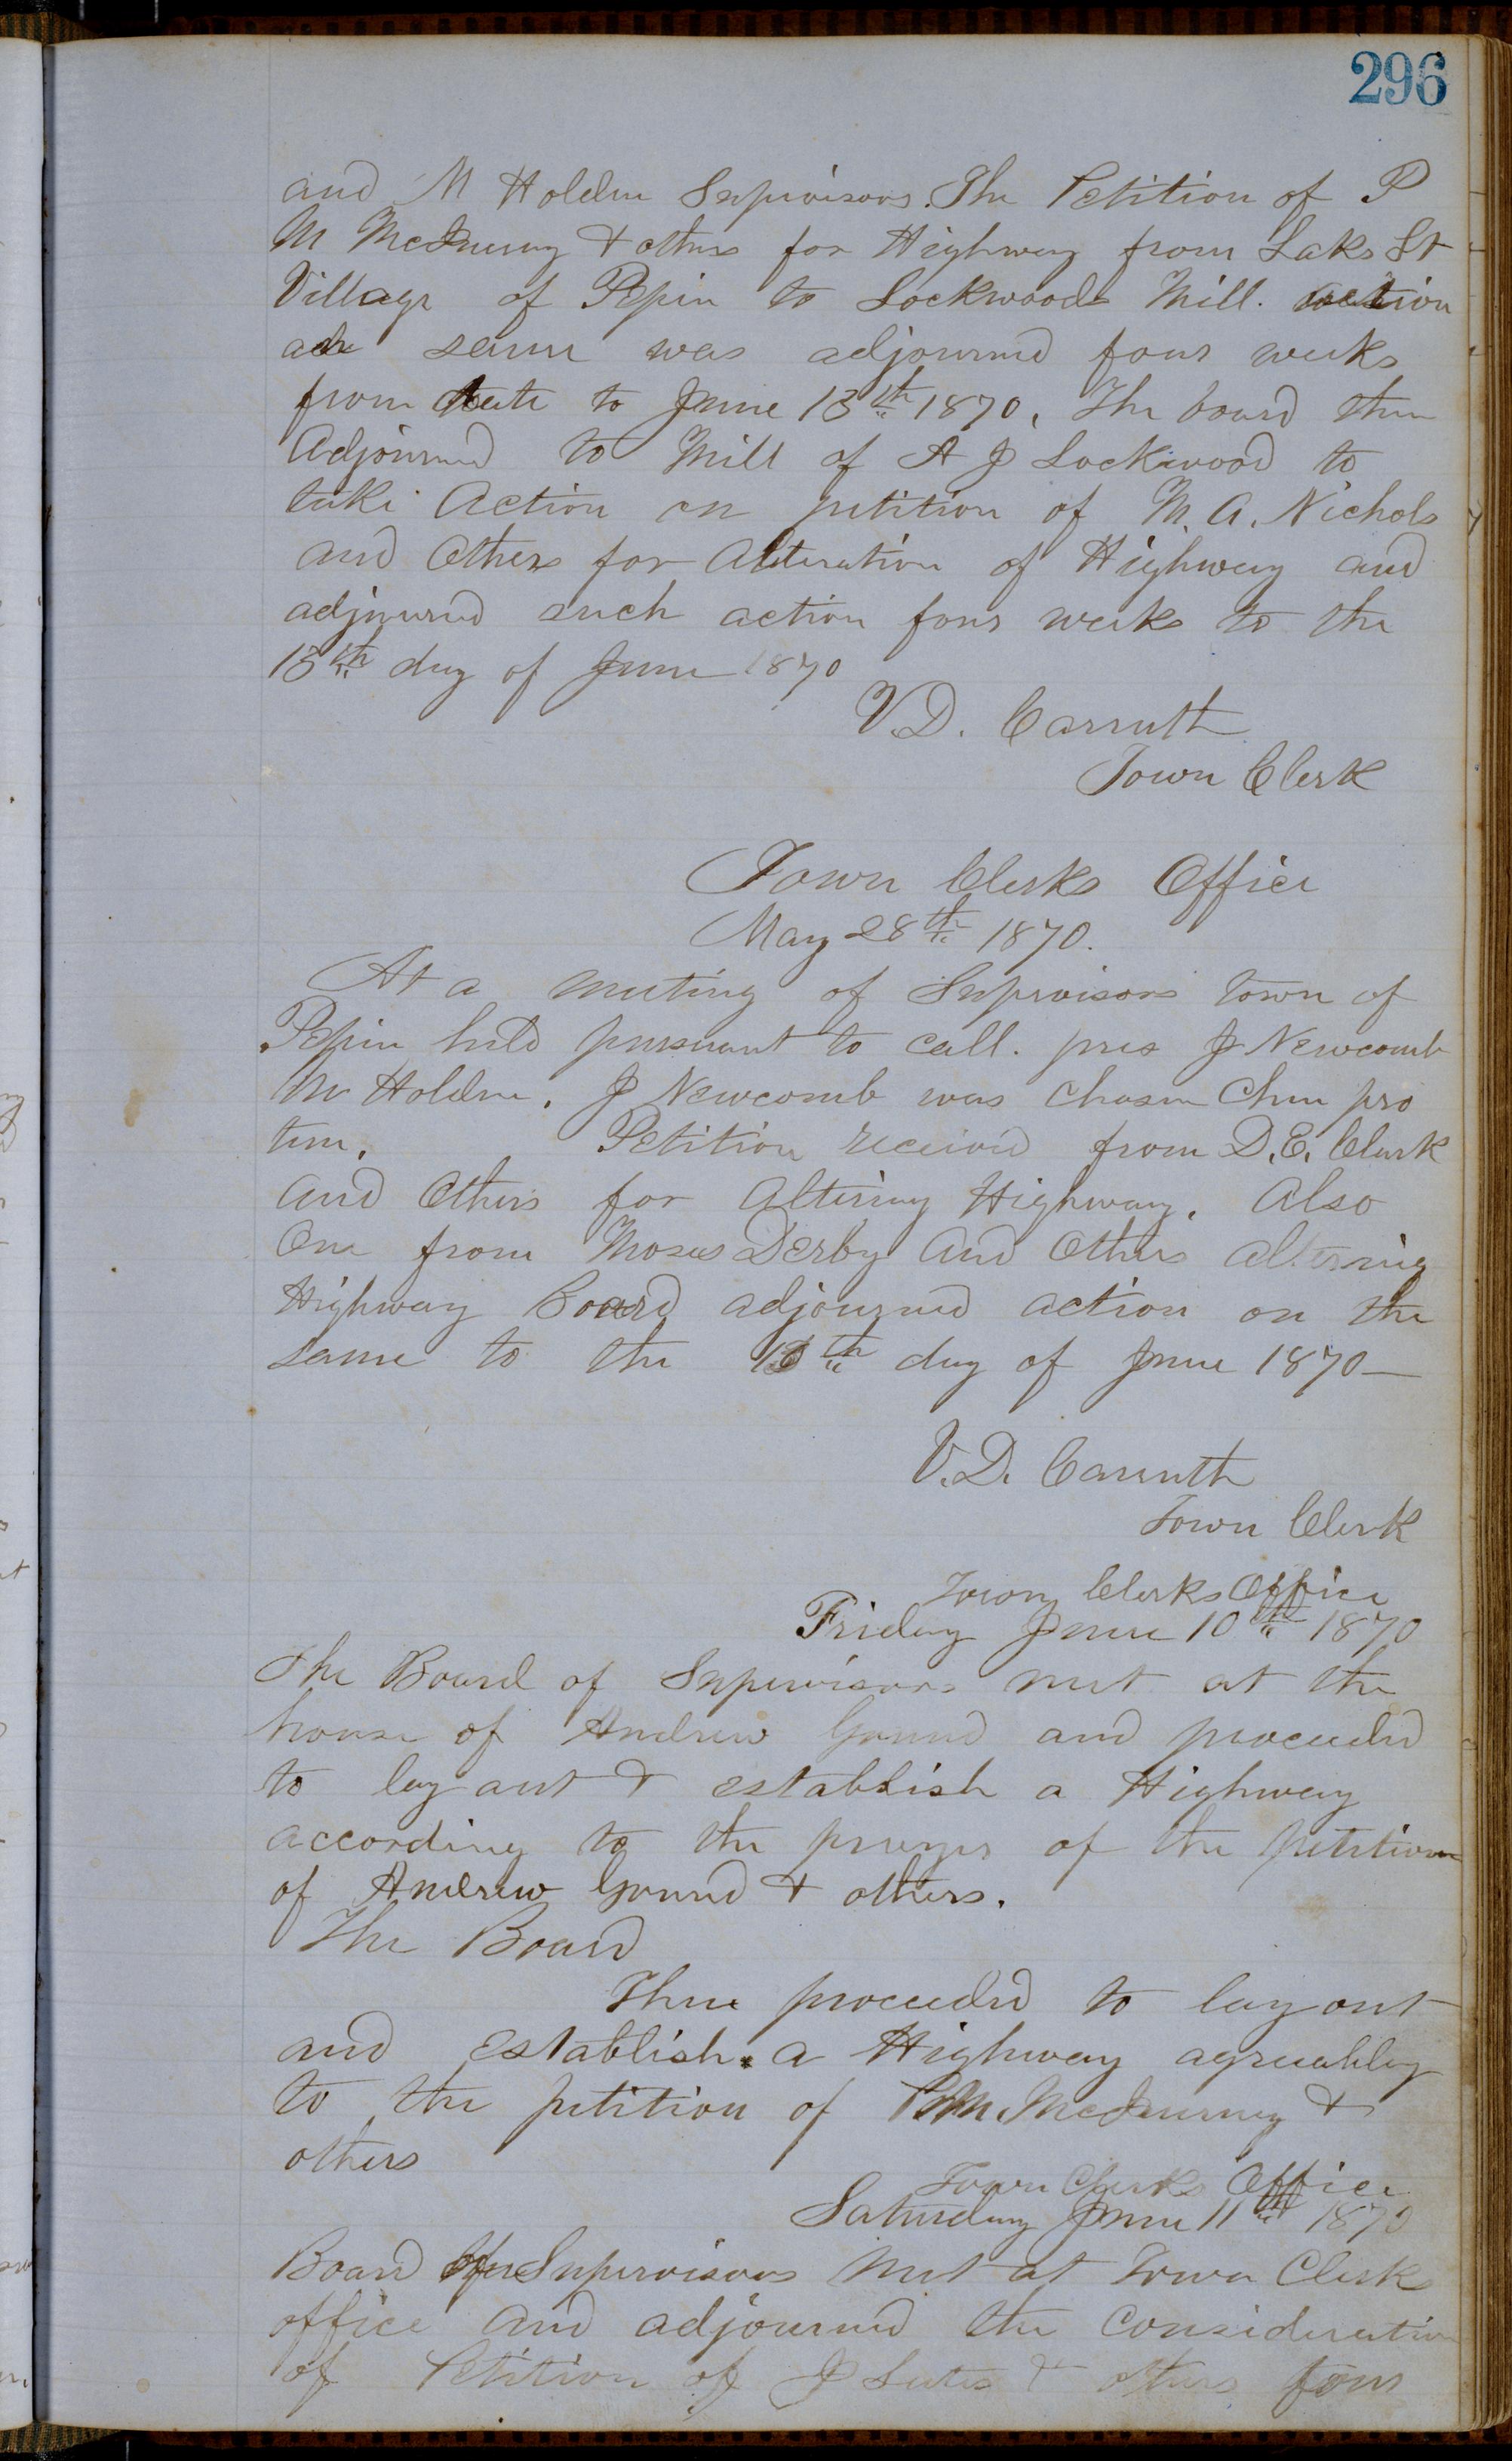 296
and M Holden Supervisors. The Petition of P
M McInurny & others for Highway from Lake St
Village of Pepin to Lockwoods Mill. action
same was adjourned four weeks
from date to June 13th 1870, The board then
Adjourned to Mill of A J Lockwood to
take Action on petition of M. A. Nichols
and Others for Alteration of Highway and
adjourned such action four weeks to the
13th day of June 1870
V. D. Carruth
Town Clerk
Town Clerks Office
May 28th 1870.
At a meeting of Supervisors town of
Pepin held pursuant to call. pres J Newcomb
M Holden. J Newcomb was Chosen Chm pro
tem. Petition received from D. E. Clark
and Others for Altering Highway. Also
One from Moses Derby And Others altering
Highway Board adjourned action on the
same to the 13th day of June 1870—
V. D. Carruth
Town Clerk
Town Clerks Office
Friday June 10th 1870
The Board of Supervisors met at the
house of Andrew Grund and proceeded
to lay out & establish a Highway
according to the prayer of the petition
of Andrew Grund & others.
The Board
Then proceeded to lay out
and establish a Highway agreeably
to the petition of P M McInurney &
others
Town Clerks Office
Saturday June 11th 1870
Board of Supervisors Met at Town Clerks
office and adjourned the Consideration
of Petition of J & others four